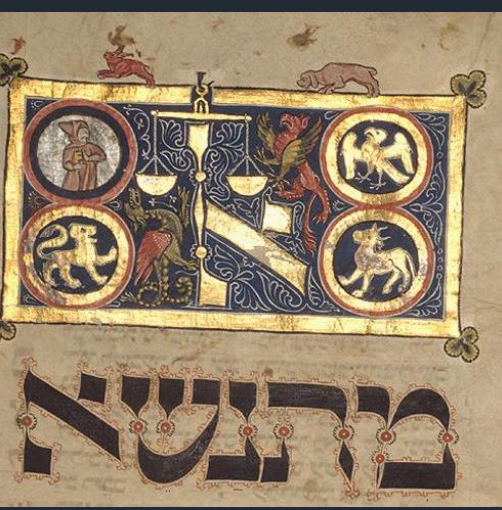 אל
מתנשא